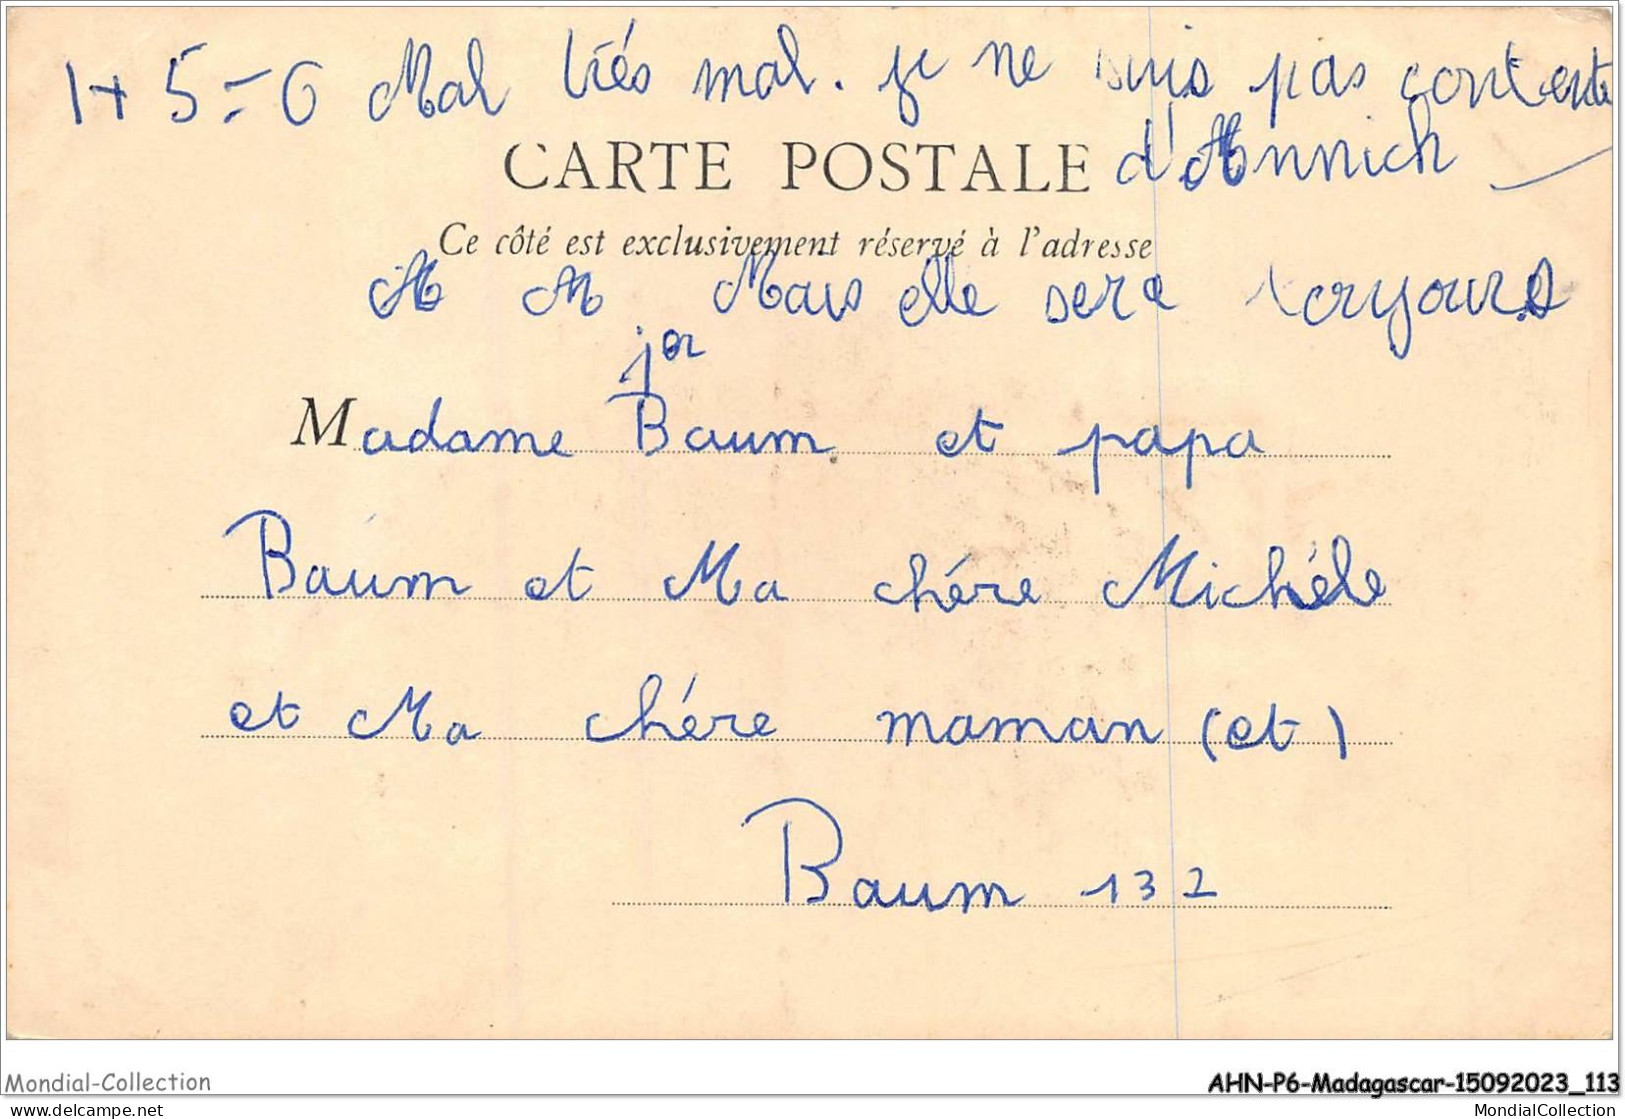 1+5=6 Mal trés mal. je ne suis pas contente
CARTE POSTALE d'Annich
Ce côté est exclusivement réservé à l'adresse
M Mais elle sera toujours
Madame Baum et papa
Baum et Ma chére Michéle
et Ma chére maman (et)
Baum 132
Mondial-Collection
AHN-P6-Madagascar-15092023_113
www.delcampe.net
MondialCollection